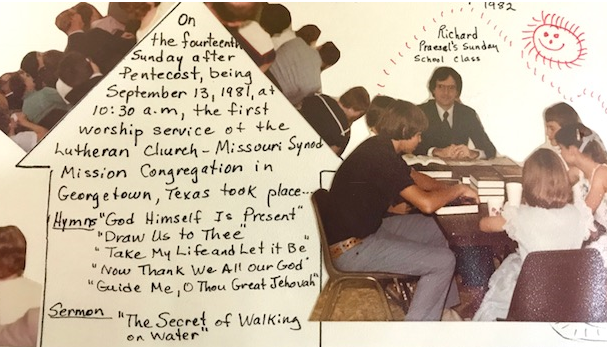 On
the fourteenth
Sunday after
Pentecost, being
September 13, 1981, at
10:30 a.m, the first
worship service of the
Lutheran Church - Missouri Synod
Mission Congregation in
Georgetown, Texas took place...
Hymns "God Himself Is Present"
"Draw Us to Thee"
"Take My Life and Let it Be"
"Now Thank We All Our God"
"Guide Me, O Thou Great Jehovah"
Sermon "The Secret of Walking
on Water"
1982
Richard
Praesel's Sunday
School class